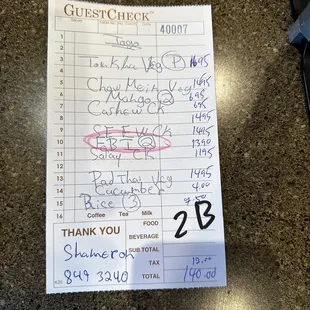 GUESTCHECK™
40007
1
2 Togo
3 Tom Kha Veg (P) 1695
4
5 Chow Mein Veg 1495
6 Mango 695
7 Cashew CK 695
8 1495
9 S E E W CK 1495
10 E B I 1390
11 Satay CK 1195
12
13 Pad Thai Veg 1495
14 Cucumber 4.00
15 Rice (3)
16 Coffee Tea Milk
THANK YOU
FOOD
BEVERAGE
2B
SUB TOTAL
TAX 12.00
TOTAL 140.00
849 3240